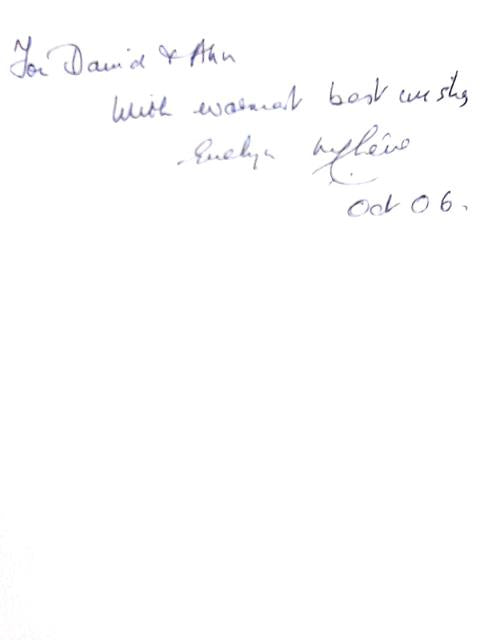 For David & Ann
With warmest best wishes
Evelyn
Oct 06.